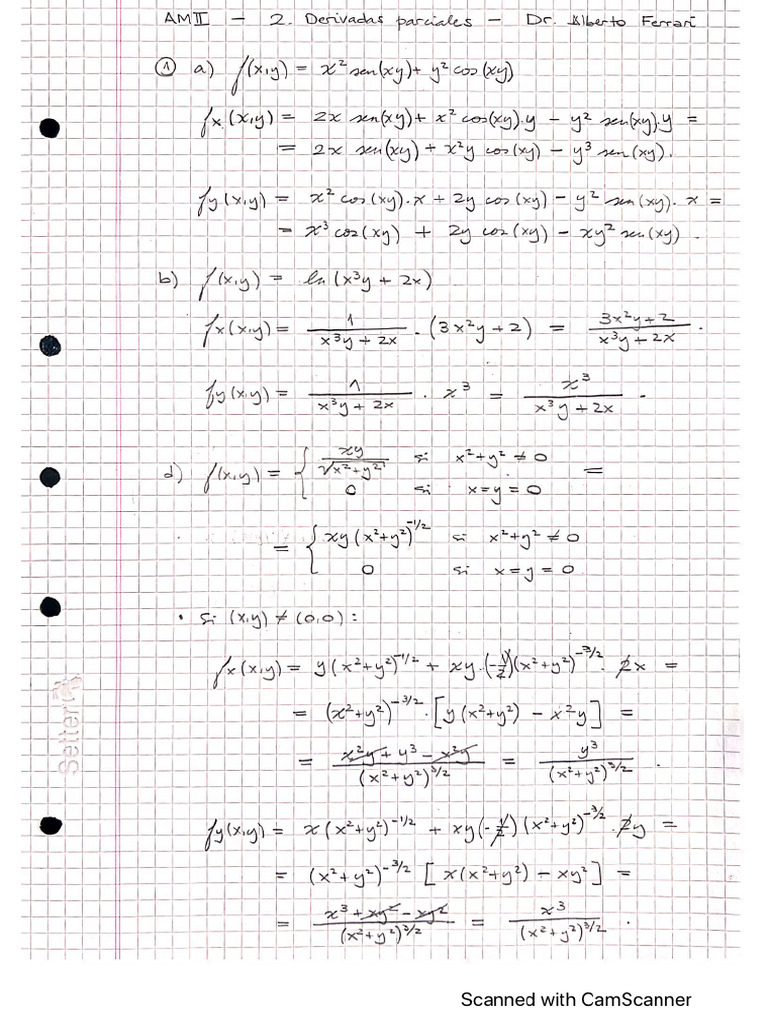 AMII - 2. Derivadas parciales - Dr. Alberto Ferrari
① a) f(x,y) = x² sen(xy) + y² cos(xy)
fx(x,y) = 2x sen(xy) + x² cos(xy).y - y² sen(xy).y =
= 2x sen(xy) + x²y cos(xy) - y³ sen(xy).
fy(x,y) = x² cos(xy).x + 2y cos(xy) - y² sen(xy).x =
= x³ cos(xy) + 2y cos(xy) - xy² sen(xy).
b) f(x,y) = ln(x³y + 2x)
fx(x,y) = 1/(x³y + 2x) . (3x²y + 2) = (3x²y + 2)/(x³y + 2x).
fy(x,y) = 1/(x³y + 2x) . x³ = x³/(x³y + 2x).
d) f(x,y) = { xy/√(x²+y²) si x²+y² ≠ 0 =
0 si x=y=0
= { xy(x²+y²)^(-1/2) si x²+y² ≠ 0
0 si x=y=0
• Si (x,y) ≠ (0,0):
fx(x,y) = y(x²+y²)^(-1/2) + xy.(-1/2)(x²+y²)^(-3/2). 2x =
= (x²+y²)^(-3/2).[y(x²+y²) - x²y] =
= (x²y + y³ - x²y)/(x²+y²)^(3/2) = y³/(x²+y²)^(3/2).
fy(x,y) = x(x²+y²)^(-1/2) + xy(-1/2)(x²+y²)^(-3/2). 2y =
= (x²+y²)^(-3/2) [x(x²+y²) - xy²] =
= (x³ + xy² - xy²)/(x²+y²)^(3/2) = x³/(x²+y²)^(3/2).
Setter
Scanned with CamScanner